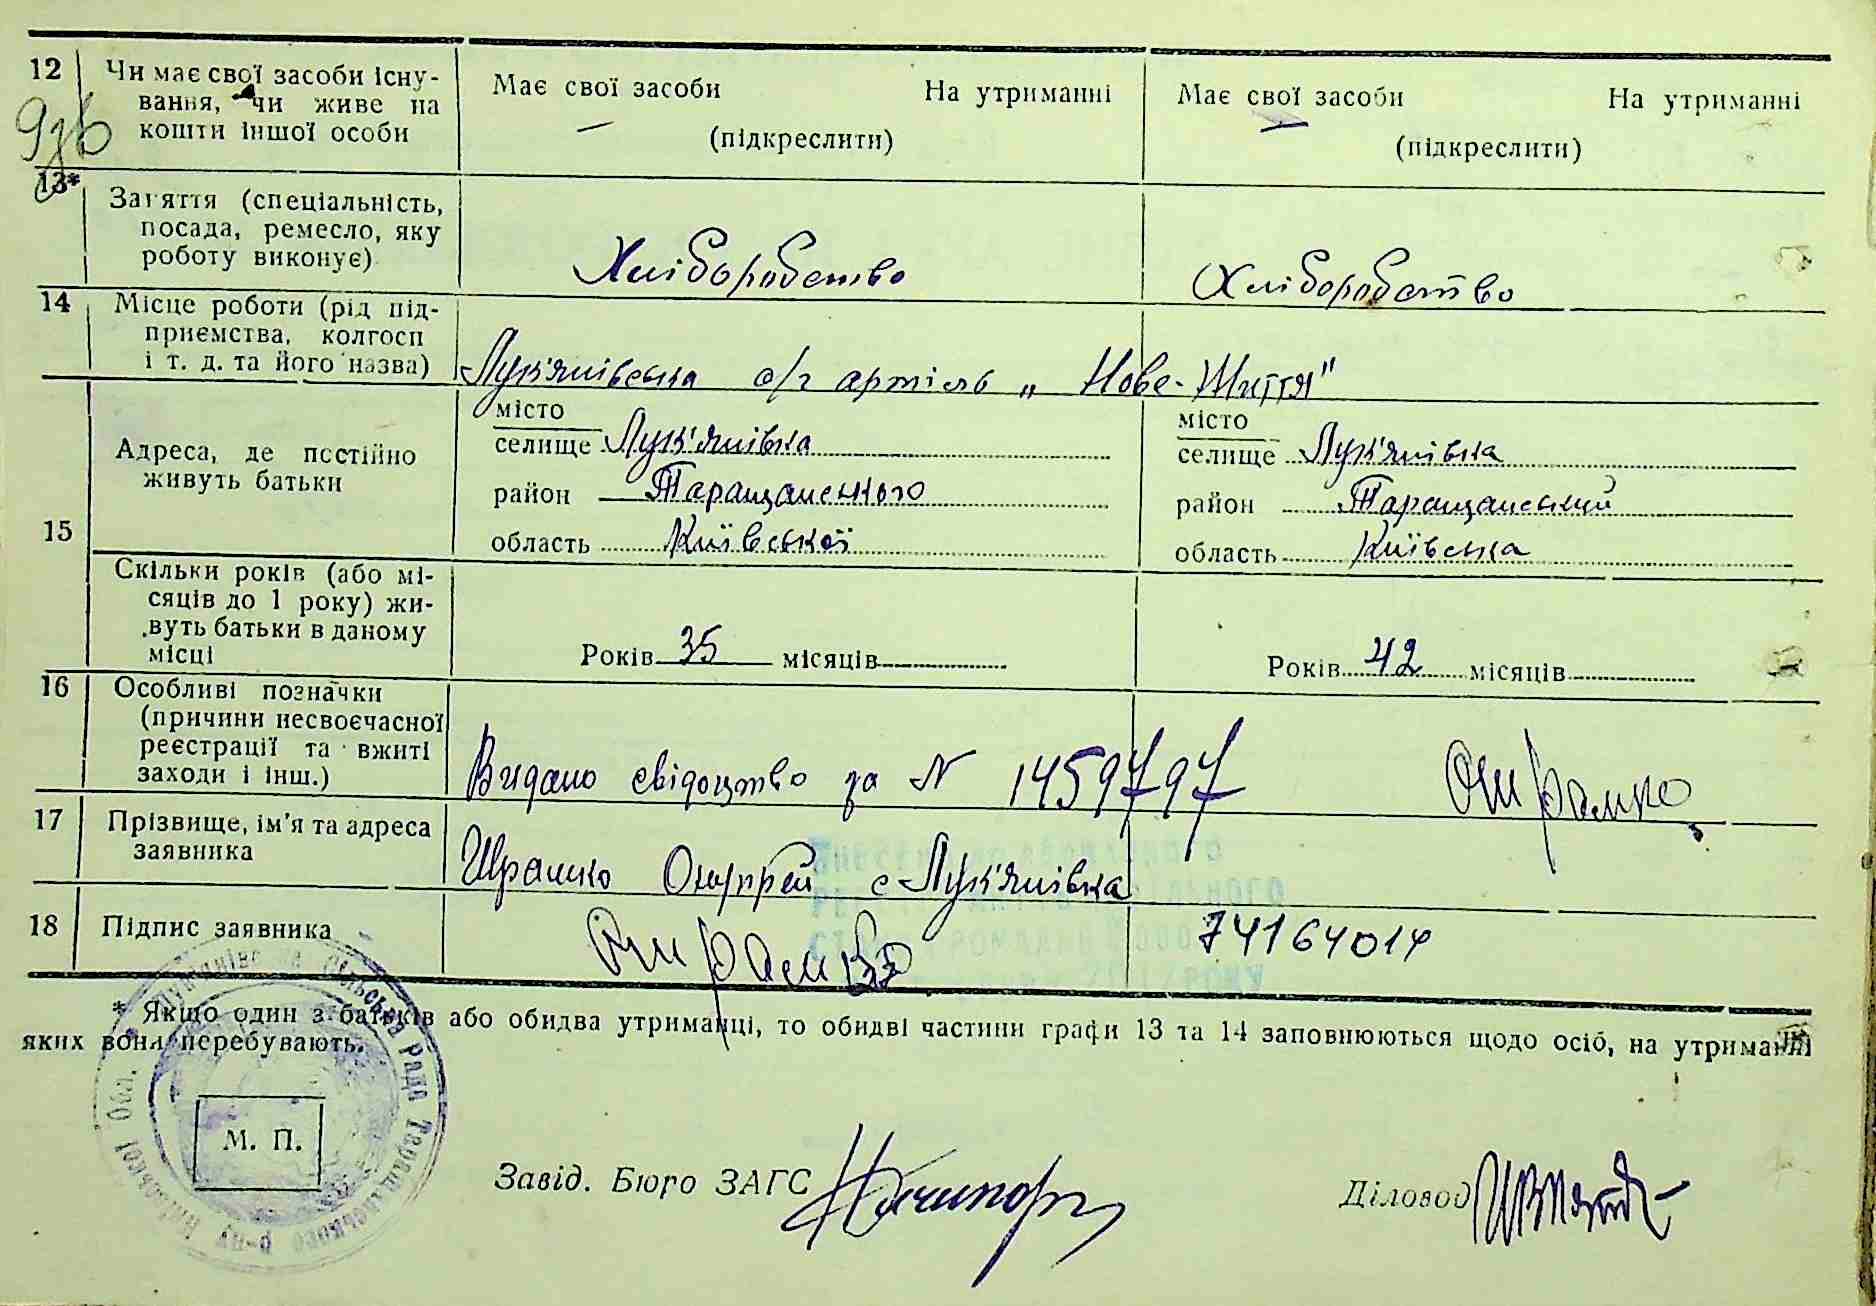 12 Чи має свої засоби існу-
вання, чи живе на
кошти іншої особи
Має свої засоби На утриманні
(підкреслити)
Має свої засоби На утриманні
(підкреслити)
13*
Заняття (спеціальність,
посада, ремесло, яку
роботу виконує)
Хліборобство
Хліборобство
14 Місце роботи (рід під-
приємства, колгосп
і т. д. та його назва)
Лук'янівська с/г артіль „Нове-Життя"
15
Адреса, де постійно
живуть батьки
місто
селище Лук'янівка
район Таращанського
область Київської
місто
селище Лук'янівка
район Таращанський
область Київська
Скільки років (або мі-
сяців до 1 року) жи-
вуть батьки в даному
місці
Років 35 місяців
Років 42 місяців
16 Особливі позначки
(причини несвоєчасної
реєстрації та вжиті
заходи і інш.)
Видано свідоцтво за N 1459797
17 Прізвище, ім'я та адреса
заявника
Шрамко Онуфрій с Лук'янівка
18 Підпис заявника
74164014
* Якщо один з батьків або обидва утриманці, то обидві частини графи 13 та 14 заповнюються щодо осіб, на утриманні
яких вони перебувають.
М. П.
Завід. Бюро ЗАГС
Діловод